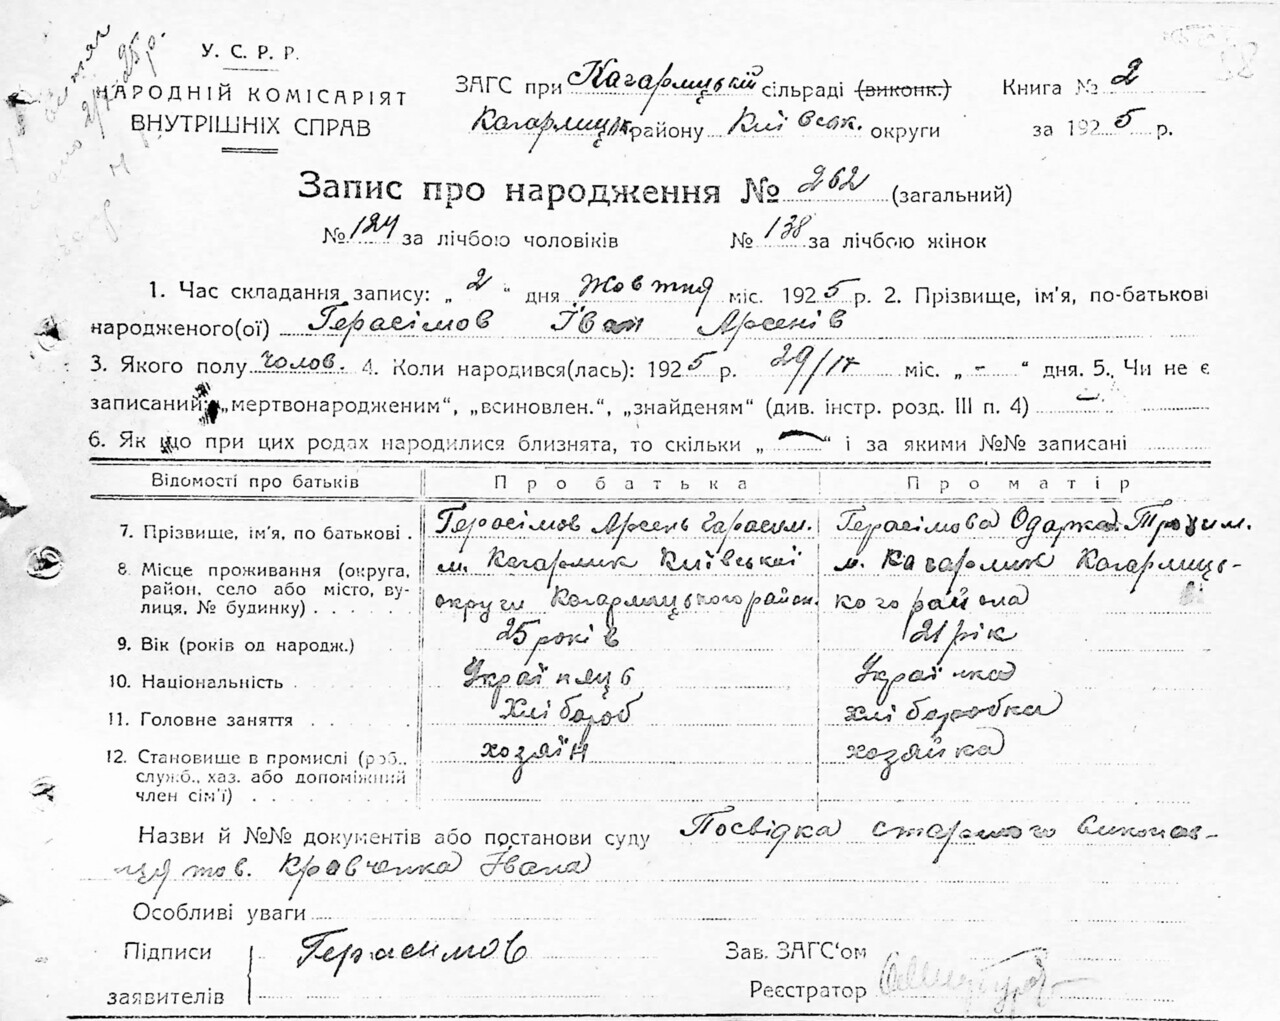 У. С. Р. Р.
НАРОДНІЙ КОМІСАРІЯТ
ВНУТРІШНІХ СПРАВ
ЗАГС при Кагарлицькій сільраді (виконк.) Книга № 2
Кагарлицьк. району Київськ. округи за 1925 р.
Запис про народження № 262 (загальний)
№ 124 за лічбою чоловіків № 138 за лічбою жінок
1. Час складання запису: „ 2 “ дня жовтня міс. 1925 р. 2. Прізвище, ім'я, по-батькові
народженого(ої) Герасімов Іван Арсенів
3. Якого полу чолов. 4. Коли народився(лась): 1925 р. 29/ міс. „ - “ дня. 5. Чи не є
записаний: „мертвонародженим“, „всиновлен.“, „знайденям“ (див. інстр. розд. III п. 4) —
6. Як що при цих родах народилися близнята, то скільки „ — “ і за якими №№ записані
Відомості про батьків Про батька Про матір
7. Прізвище, ім'я, по батькові . Герасімов Арсень Гарасим. Герасімова Одарка Трохим.
8. Місце проживання (округа, м. Кагарлик Київської м. Кагарлик Кагарлиць-
район, село або місто, ву- округи Кагарлицького район. кого района
лиця, № будинку) . . . . .
9. Вік (років од народж.) 25 років 21 рік
10. Національність . . . . . Українець Українка
11. Головне заняття . . . . . Хлібороб хліборобка
12. Становище в промислі (роб., хозяїн хозяйка
служб., хаз. або допоміжний
член сім'ї) . . . . . . . .
Назви й №№ документів або постанови суду Посвідка старшого виконав-
ця тов. Кравченка Івана
Особливі уваги
Підписи Герасимов Зав. ЗАГС'ом
заявителів Реєстратор